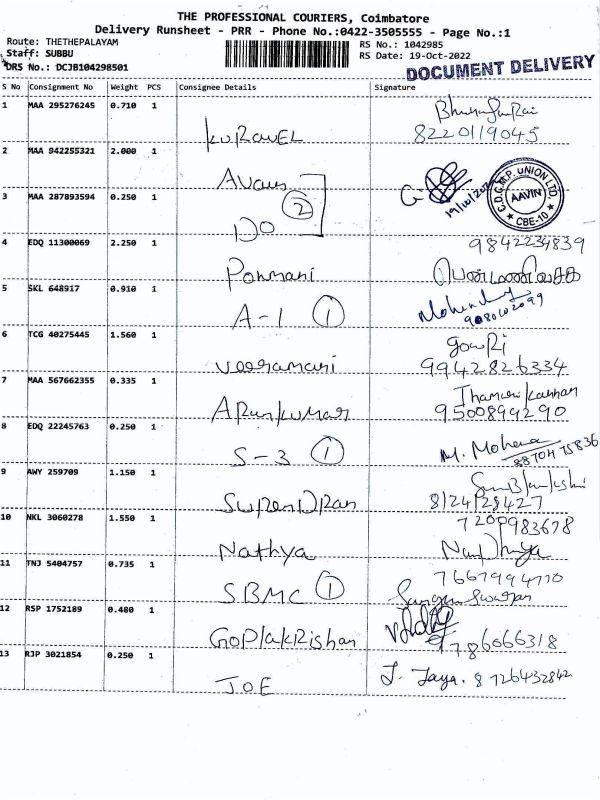 THE PROFESSIONAL COURIERS, Coimbatore
Delivery Runsheet - PRR - Phone No.:0422-3505555 - Page No.:1
Route: THETHEPALAYAM
Staff: SUBBU
DRS No.: DCJB104298501
RS No.: 1042985
RS Date: 19-Oct-2022
DOCUMENT DELIVERY
S No Consignment No Weight PCS Consignee Details Signature
1 MAA 295276245 0.710 1
KURAVEL
8220119045
2 MAA 942255321 2.000 1
19/10/2022
C.D.C.M.P. UNION LTD.
AAVIN
CBE-10
3 MAA 287893594 0.250 1
DO
2
4 EDQ 11300069 2.250 1
9842234839
Ponmani
5 SKL 648917 0.910 1
A-1 1
6 TCG 40275445 1.560 1
gowRi
Veeramani 9942826334
7 MAA 567662355 0.335 1
Thamarikannan
ARunkumar 9500899290
8 EDQ 22245763 0.250 1
S-3 1 M. Mohana
9 AWY 259709 1.150 1
SuRenDRan 8124128427
10 NKL 3060278 1.550 1
7200983678
Nathya
11 TNJ 5404757 0.735 1
SBMC 1
12 RSP 1752189 0.480 1
GoPlakRishan
13 RJP 3021854 0.250 1
JOE J. Jaya. 8726432842